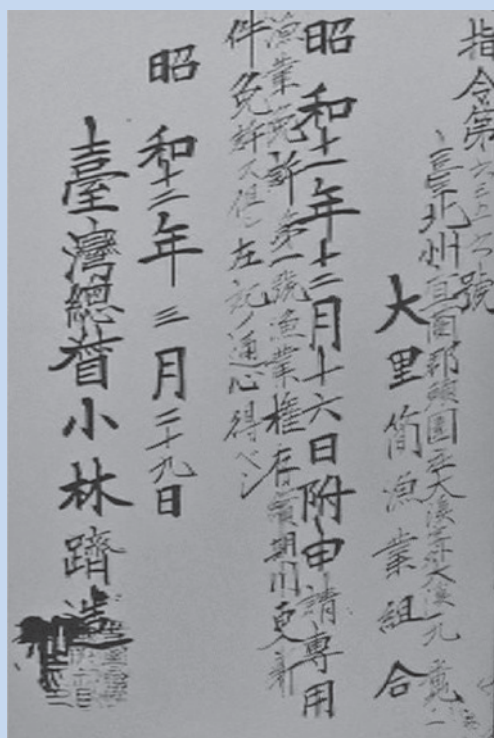 指令第六三號
臺北州宜蘭郡頭圍庄大溪字外大溪
大里簡漁業組合
昭和十一年十二月十六日附申請專用
漁業免許第一號漁業權存續期間更新
件免許ス但シ左記ノ通心得ベシ
昭和十二年三月二十九日
臺灣總督小林躋造